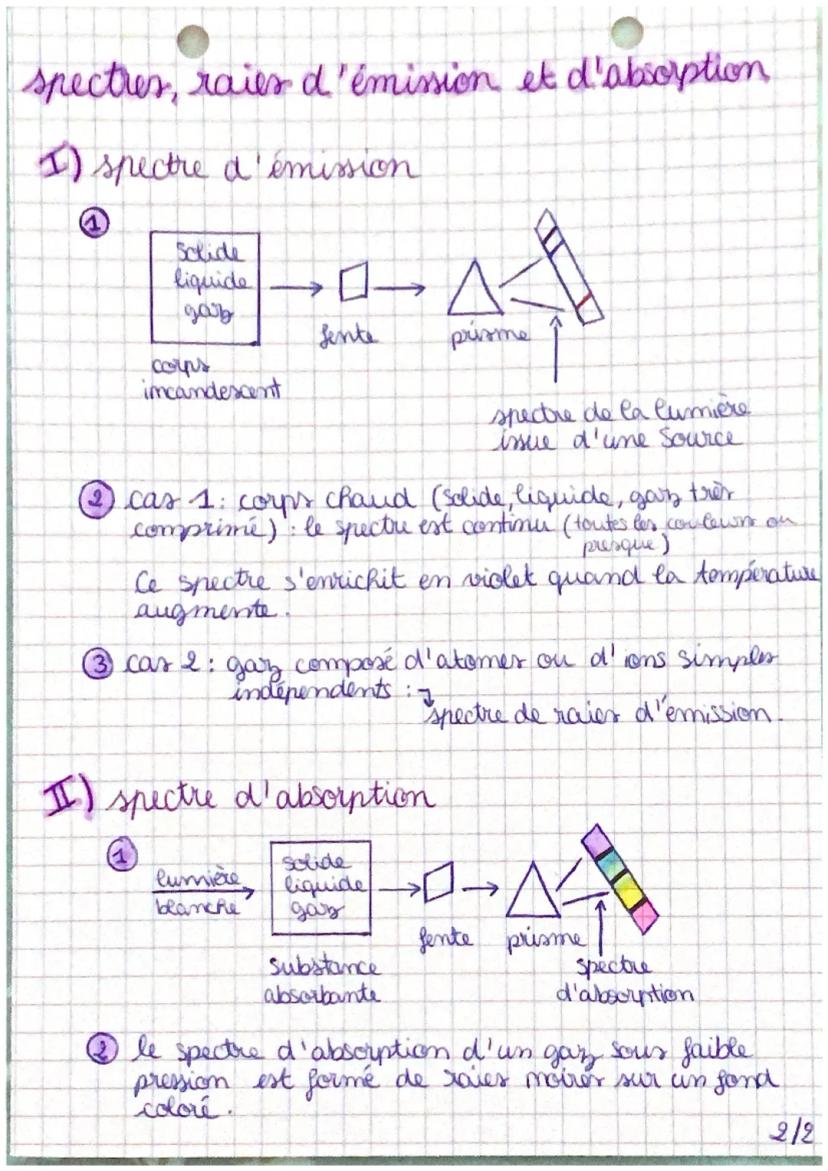 spectres, raies d'émission et d'absorption
I) spectre d'émission
1
solide
liquide
gaz
fente
prisme
corps
incandescent
spectre de la lumière
issue d'une source
2 cas 1: corps chaud (solide, liquide, gaz très
comprimé) : le spectre est continu (toutes les couleurs ou
presque)
Ce spectre s'enrichit en violet quand la température
augmente.
3 cas 2 : gaz composé d'atomes ou d'ions simples
indépendents :
spectre de raies d'émission.
II) spectre d'absorption
1
lumière
blanche
solide
liquide
gaz
fente
prisme
substance
absorbante
spectre
d'absorption
2 le spectre d'absorption d'un gaz sous faible
pression est formé de raies noires sur un fond
coloré.
2/2